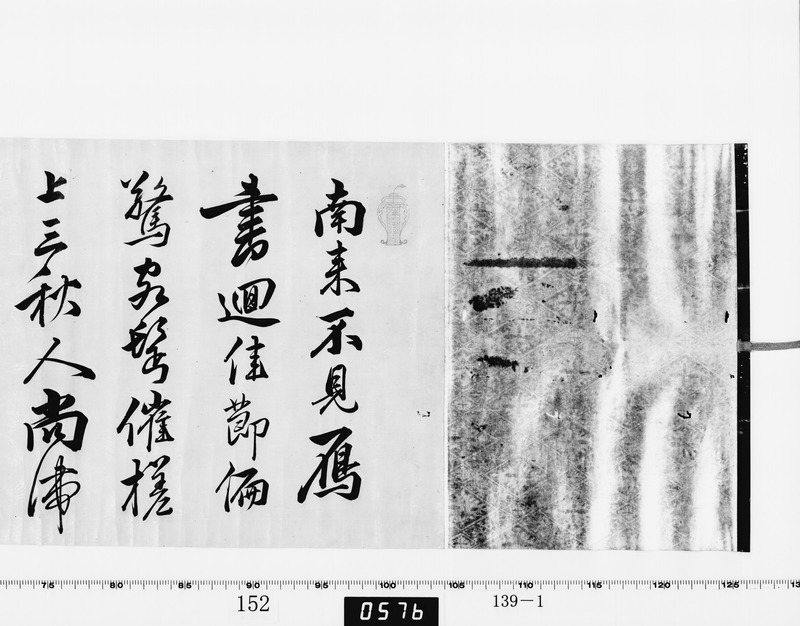 南来不見鴈
書廻佳節偏
驚客鬢催槎
上三秋人尚滞
75 80 85 90 95 100 105 110 115 120 125 13
152
0576
139-1